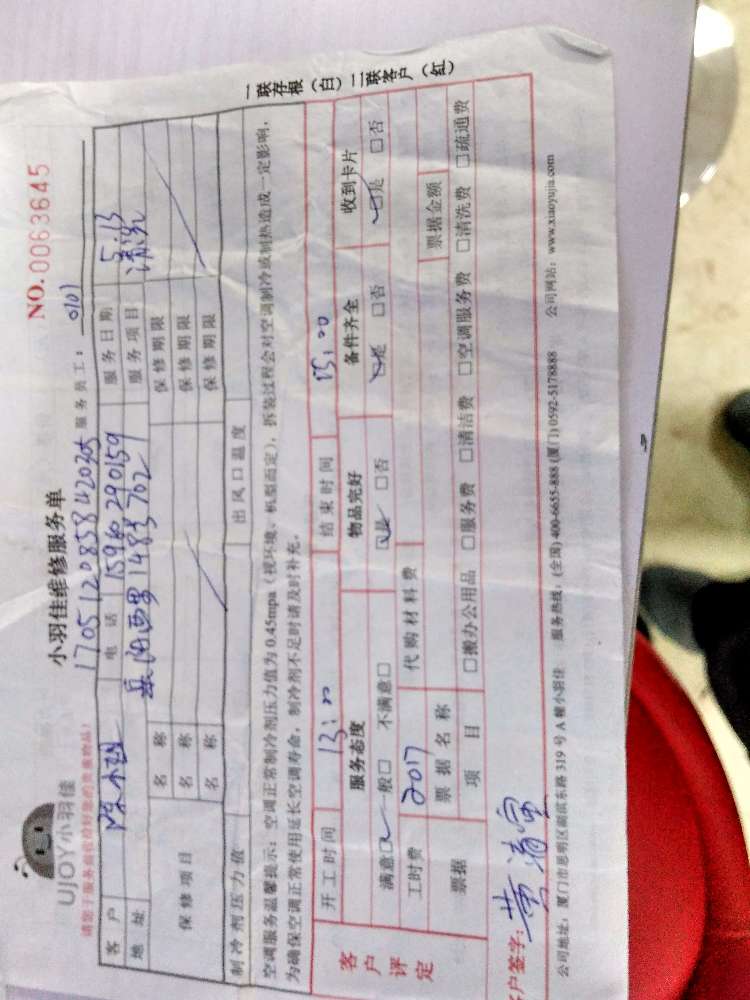 一联存根（白）二联客户（红）
UJOY小羽佳
小羽佳维修服务单
NO.0063645
请您于服务前收待好您的贵重物品!
1705120858420205
服务员工: 0101
客户 电话 15960290159 服务日期 5.13
地址 1483702 服务项目 清洗
保修项目 名称 保修期限
名称 保修期限
名称 保修期限
制冷剂压力值 出风口温度
空调服务温馨提示: 空调正常制冷剂压力值为0.45mpa（视环境、机型而定），拆装过程会对空调制冷或制热造成一定影响，
为确保空调正常使用延长空调寿命，制冷剂不足时请及时补充。
客户评定 开工时间 13:00 结束时间 15:00
服务态度 物品完好 备件齐全 收到卡片
满意□ 一般□ 不满意□ □是 □否 □是 □否 □是 □否
工时费 2017 代购材料费
票据 票据名称 票据金额
项目 □搬办公用品 □服务费 □清洁费 □空调服务费 □清洗费 □疏通费
客户签字:
公司地址: 厦门市思明区湖滨东路319号A幢小羽佳 服务热线: (全国)400-6655-888 (厦门)0592-5178888 公司网站: www.xiaoyujia.com